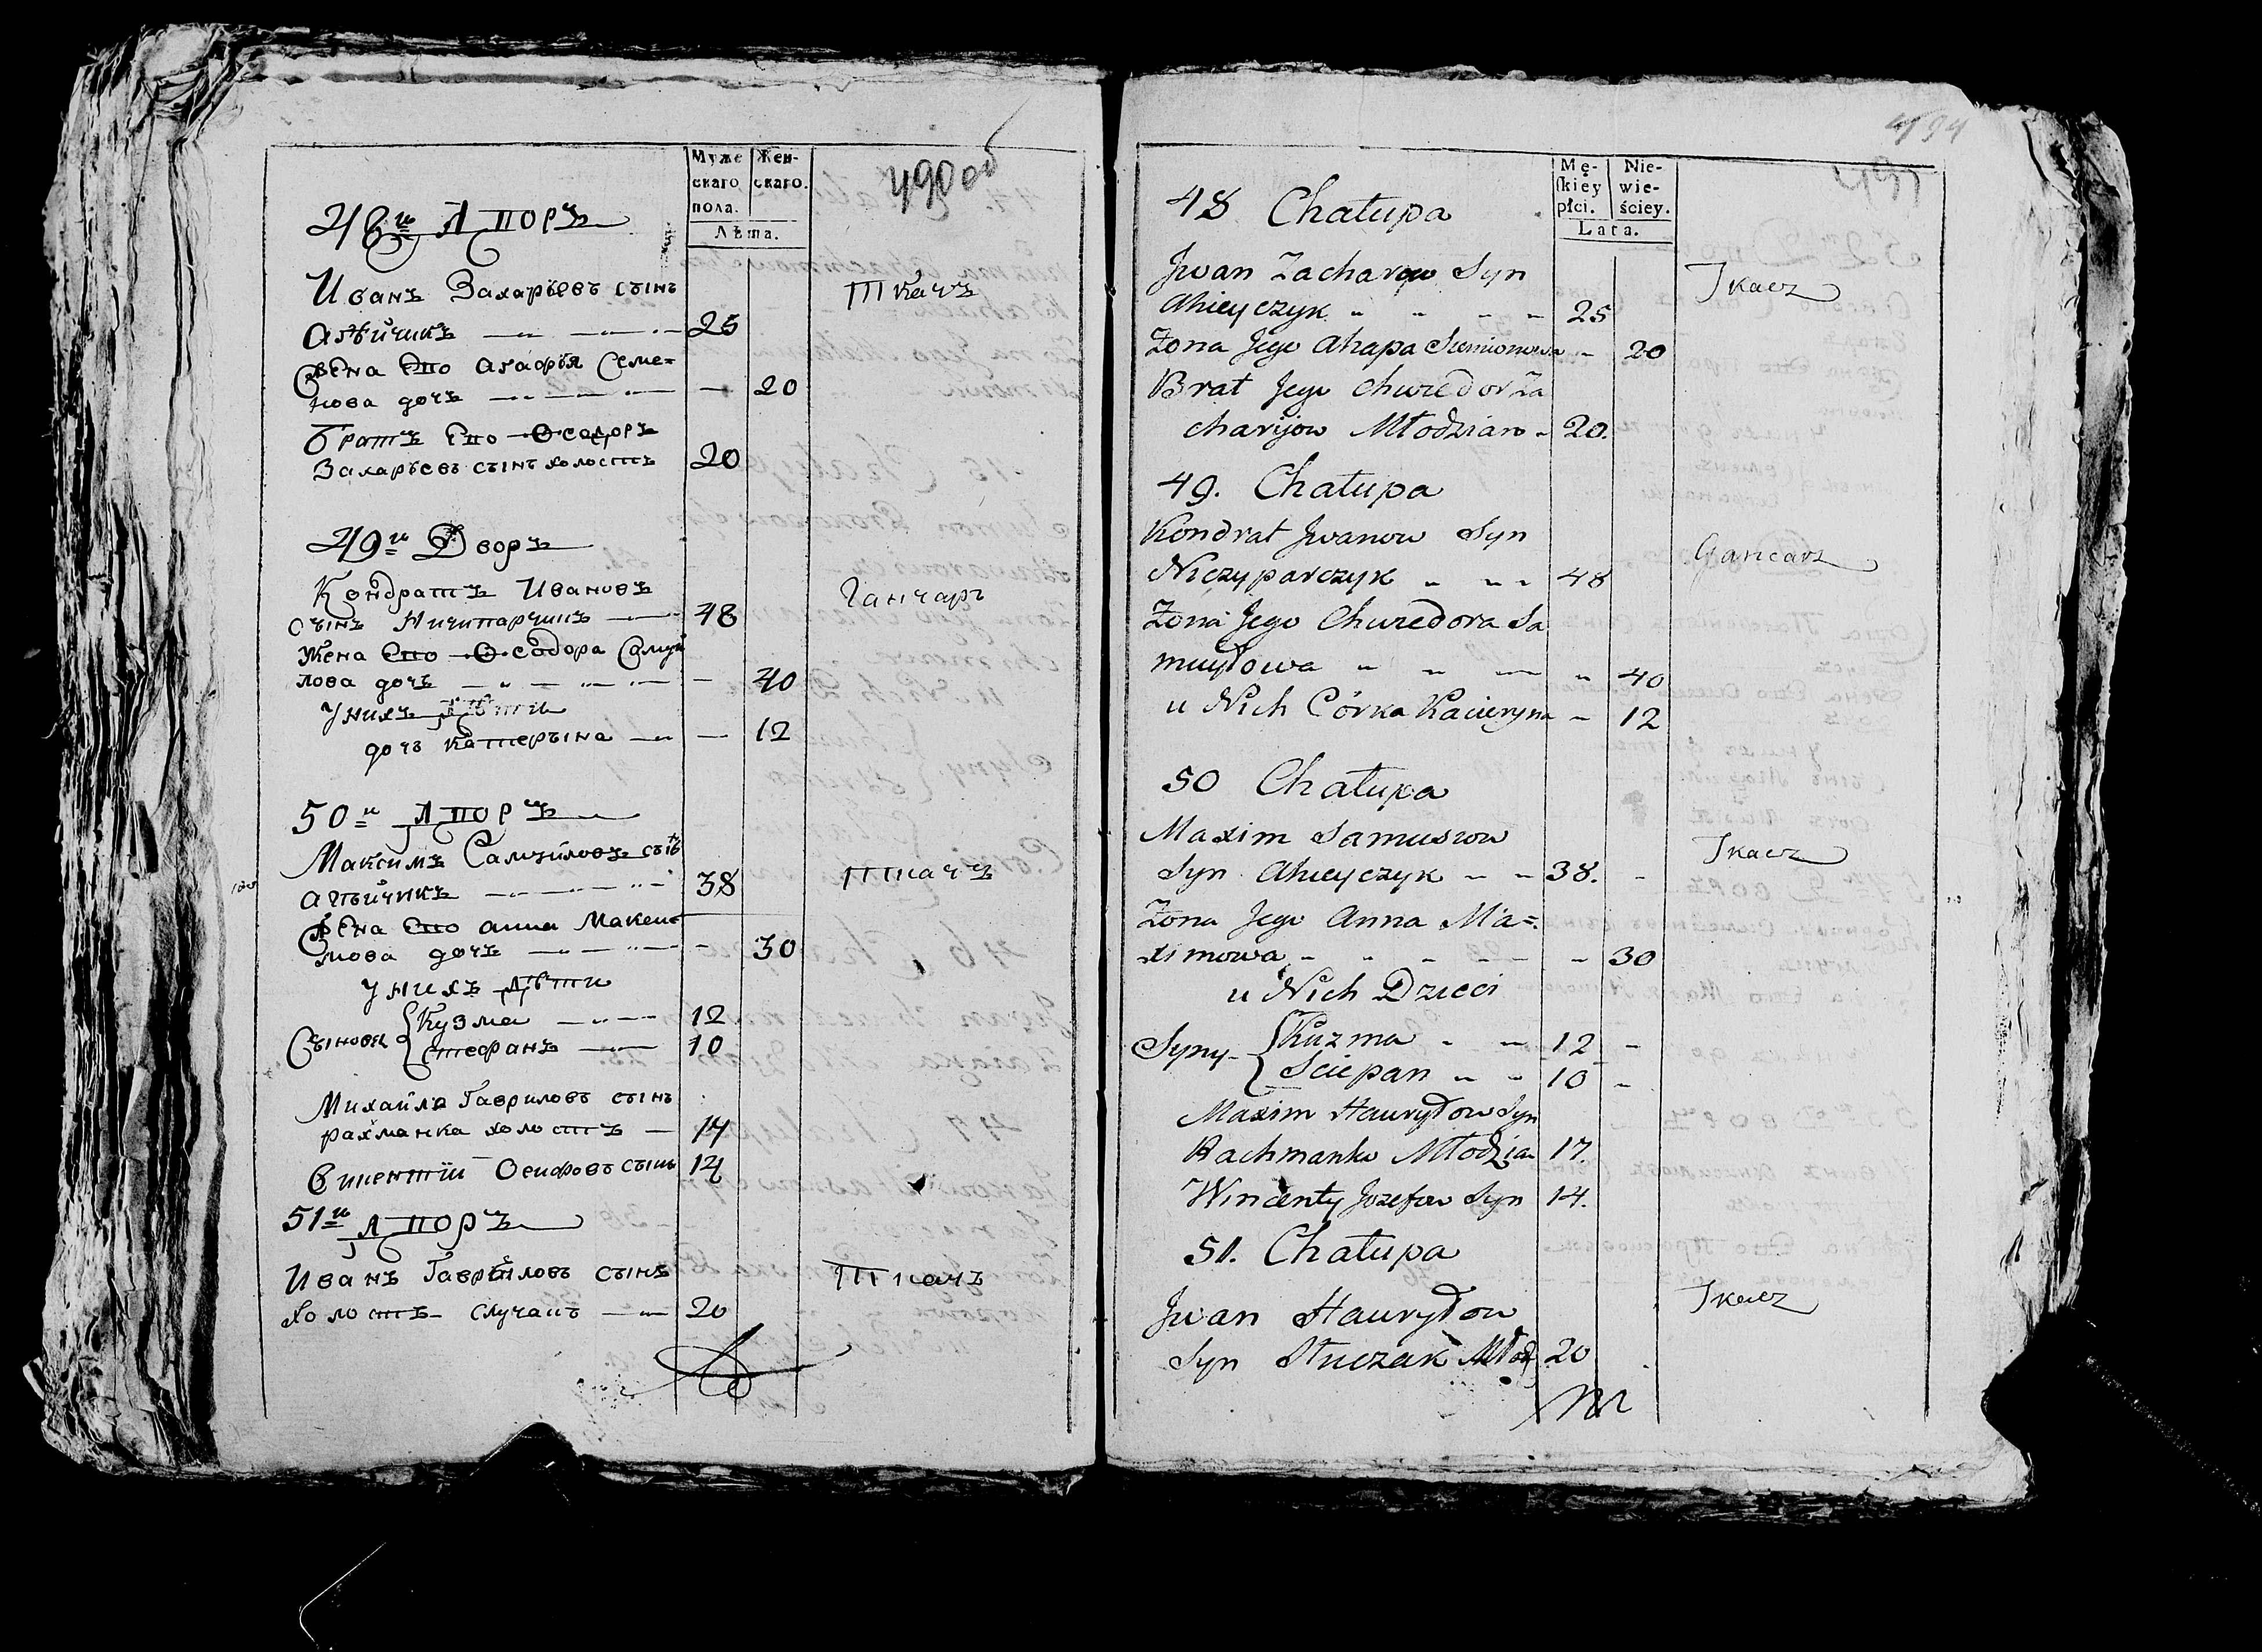 Муже
скаго
пола.
Жен-
скаго.
Лѣта.
490 об
48й Дворъ
Иванъ Захарьевъ сынъ
Агѣйчикъ 25
Ткачъ
Жена Его Агафья Семе=
нова дочь — 20
Братъ Его Ѳеодоръ
Захарьевъ сынъ холостъ 20
49й Дворъ
Кондратъ Ивановъ
сынъ Ничипарчикъ 48
Ганчаръ
Жена Его Ѳеодора Самуй
лова дочь — 40
У нихъ дѣти
дочь Катерына — 12
50й Дворъ
Максимъ Самуйловъ сынъ
Агѣйчикъ 38
Ткачъ
Жена Его Анна Макси=
мова дочь — 30
У нихъ дѣти
Сыновья { Кузма 12
Стефанъ 10
Михайла Гавриловъ сынъ
рахманка холостъ — 17
Викентій Осифовъ сынъ 14
51й Дворъ
Иванъ Гавриловъ сынъ
холостъ случакъ 20
Ткачъ
494
491
Mę-
skiey
płci.
Nie-
wie-
ściey.
Lata.
48 Chałupa
Jwan Zacharyw Syn
Ahieyczyk " " " 25
Tkacz
Żona Jego Ahapa Siemionowa - 20
Brat Jego Chwiedor Za
charyjow Młodzian - 20.
49. Chałupa
Kondrat Jwanow Syn
Niczyparczyk " " " 48
Gancarz
Żona Jego Chwiedora Sa
muyłowa " " — " 40
u Nich Córka Kacieryna - 12
50 Chałupa
Maxim Samusiow
Syn Ahieyczyk - - 38. -
Tkacz
Żona Jego Anna Ma=
ximowa - " - - - - 30
u Nich Dzieci
Syny- { Kuzma - - 12 -
Sciepan " " 10 -
Maxim Hauryłow Syn
Rachmanka Młodzian 17
Wincenty Jozefow Syn 14.
51. Chałupa
Jwan Hauryłow
Syn Słuczak Młodz 20
Tkacz